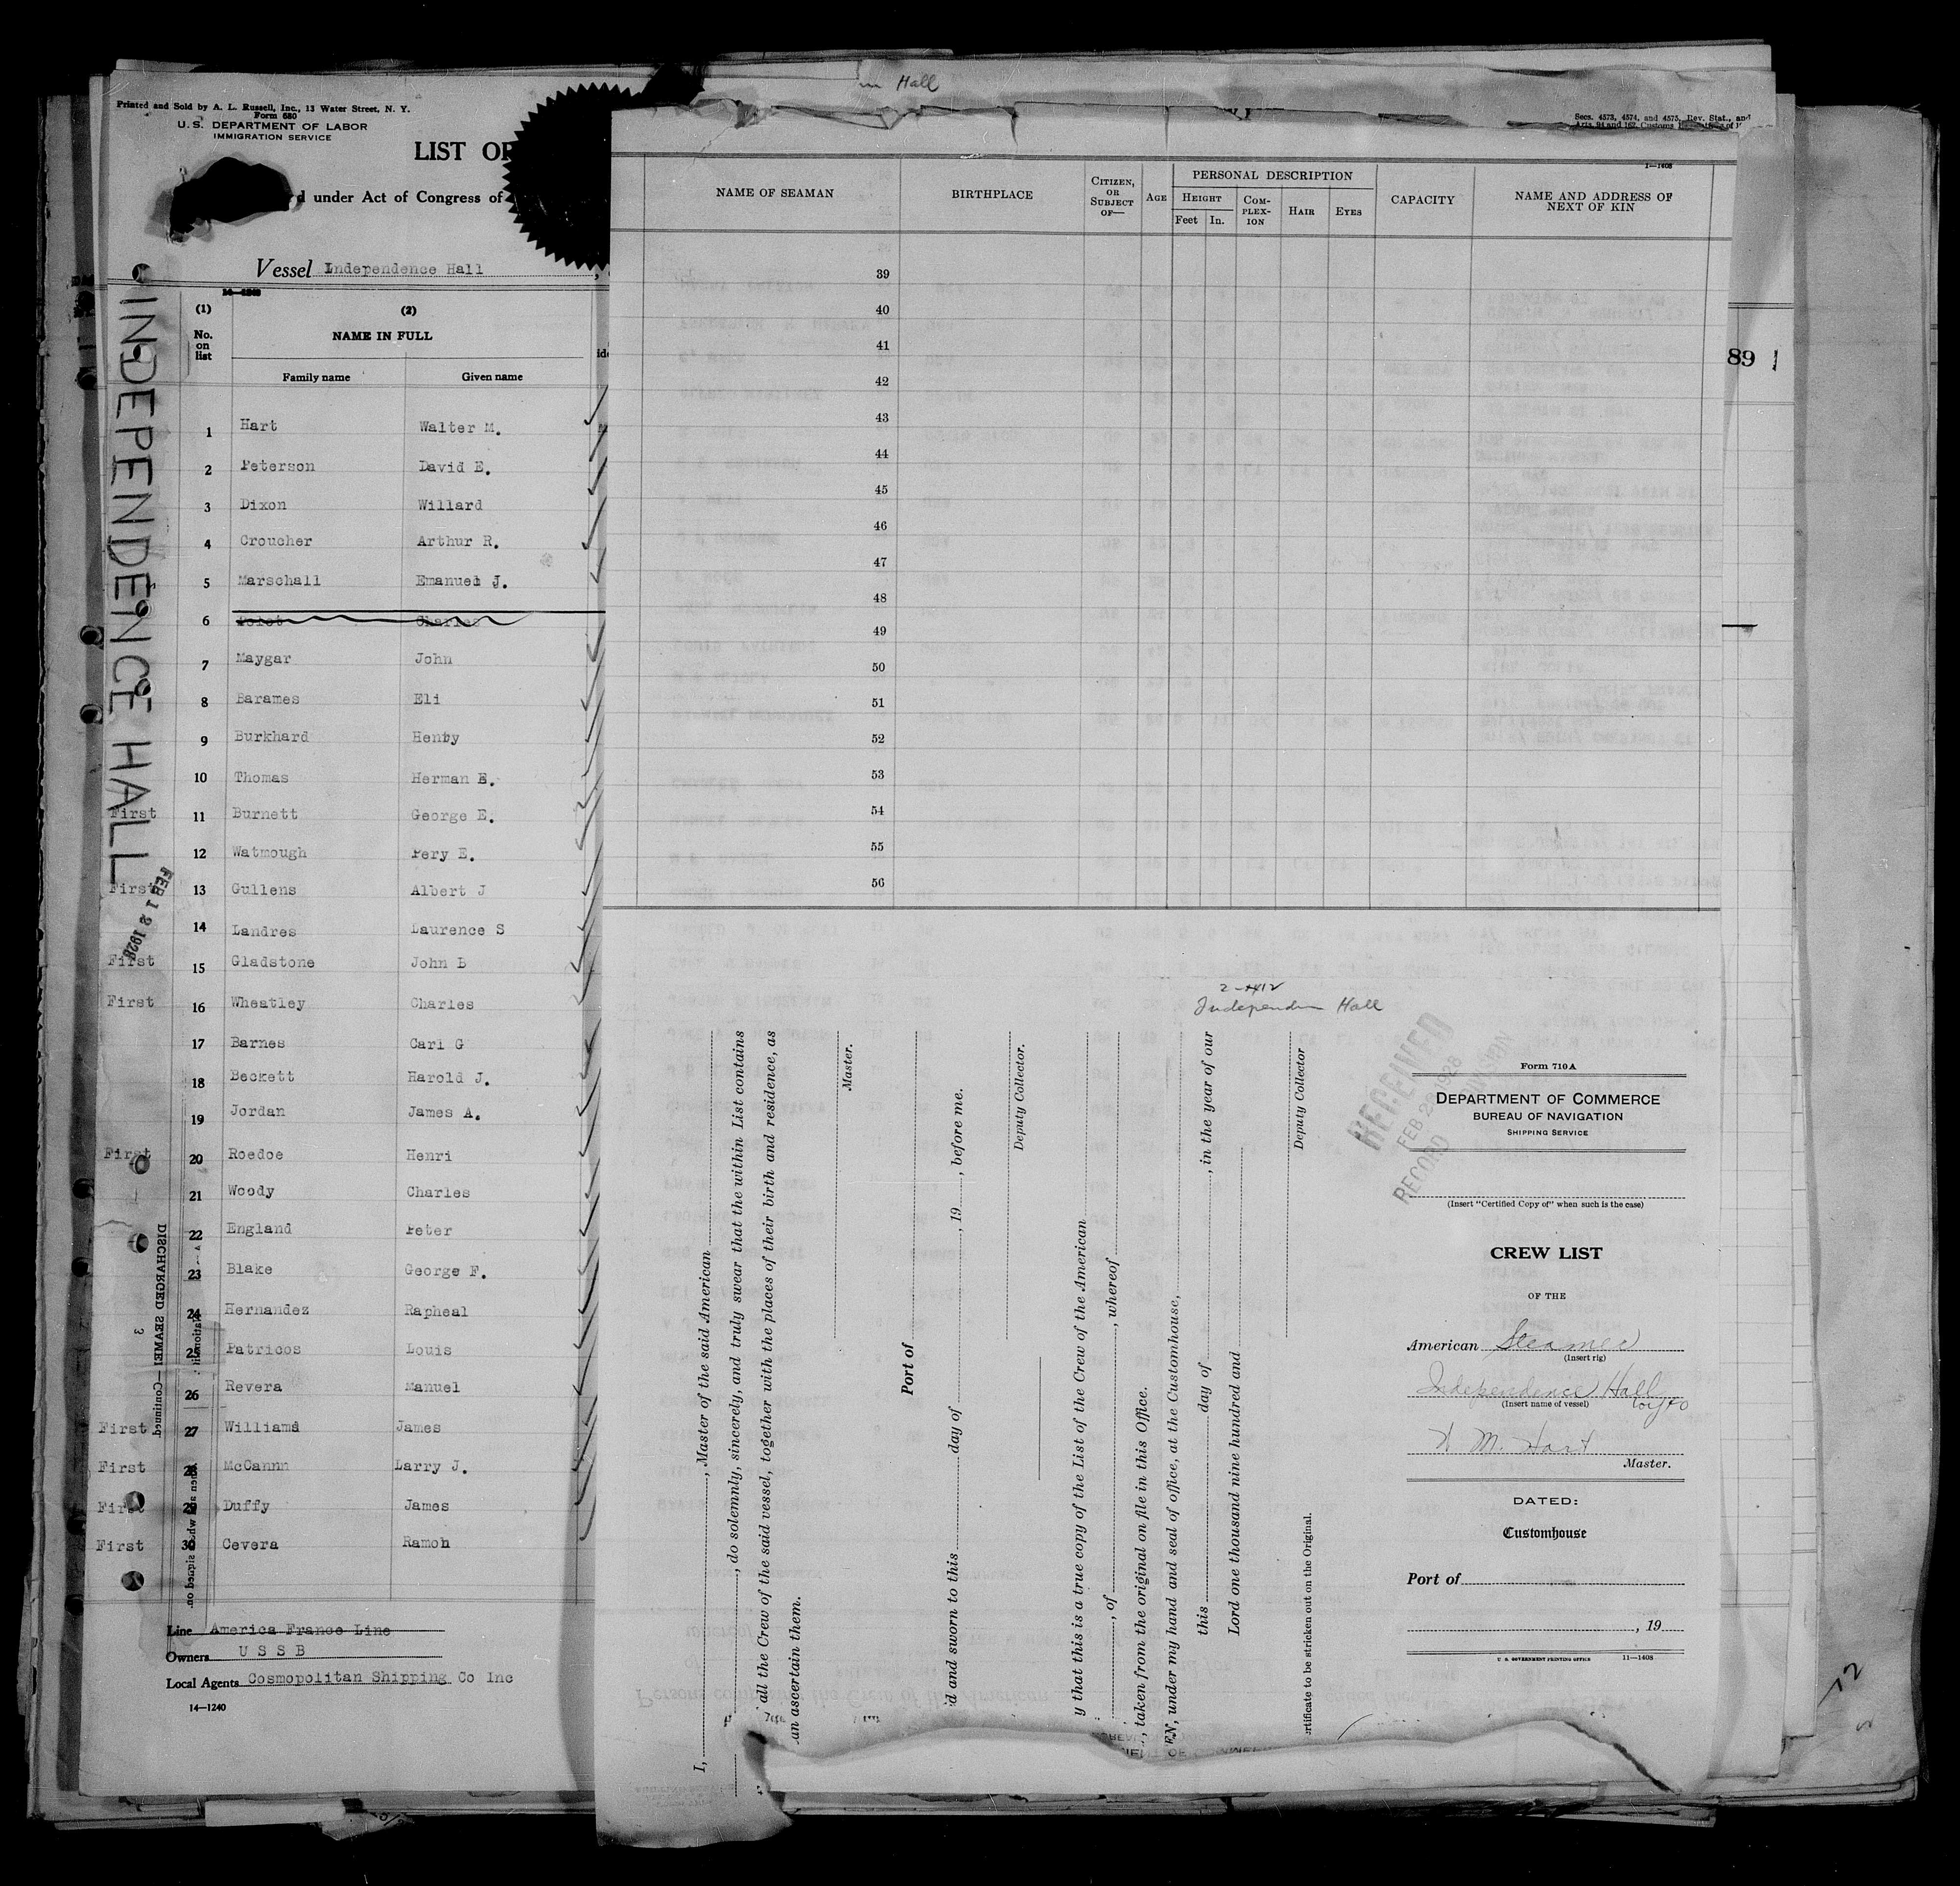 Printed and Sold by A. L. Russell, Inc., 13 Water Street, N. Y.
Form 680
U.S. DEPARTMENT OF LABOR
IMMIGRATION SERVICE
LIST OF
d under Act of Congress of
Vessel Independence Hall
INDEPENDENCE HALL
FEB 12 1928
(1) (2)
No. on list
NAME IN FULL
Family name Given name
1 Hart Walter M.
2 Peterson David E.
3 Dixon Willard
4 Croucher Arthur R.
5 Marschall Emanuel J.
6 Charles
7 Maygar John
8 Barames Eli
9 Burkhard Henry
10 Thomas Herman E.
First 11 Burnett George E.
12 Watmough Pery E.
First 13 Gullens Albert J
14 Landres Laurence S
First 15 Gladstone John B
First 16 Wheatley Charles
17 Barnes Carl G
18 Beckett Harold J.
19 Jordan James A.
First 20 Roedoe Henri
21 Woody Charles
22 England Peter
23 Blake George F.
24 Hernandez Rapheal
25 Patricos Louis
26 Revera Manuel
First 27 Williams James
First 28 McCannn Larry J.
First 29 Duffy James
First 30 Cevera Ramon
DISCHARGED SEAMEN—Continued
3
Line America France Line
Owners U S S B
Local Agents Cosmopolitan Shipping Co Inc
14—1240
Hall
Secs. 4573, 4574, and 4575, Rev. Stat., and
Arts. 94 and 162, Customs
1—1408
NAME OF SEAMAN
BIRTHPLACE
CITIZEN, OR SUBJECT OF—
AGE
PERSONAL DESCRIPTION
HEIGHT
Feet In.
COM-PLEX-ION
HAIR
EYES
CAPACITY
NAME AND ADDRESS OF NEXT OF KIN
39
40
41
42
43
44
45
46
47
48
49
50
51
52
53
54
55
56
89
Independen Hall
I, , Master of the said American
, do solemnly, sincerely, and truly swear that the within List contains
all the Crew of the said vessel, together with the places of their birth and residence, as
an ascertain them.
Master.
Port of
d and sworn to this day of , 19 , before me.
Deputy Collector.
y that this is a true copy of the List of the Crew of the American
, of , whereof
, taken from the original on file in this Office.
EN, under my hand and seal of office, at the Customhouse,
this day of , in the year of our
Lord one thousand nine hundred and
Deputy Collector
rtificate to be stricken out on the Original.
RECEIVED
FEB 29 1928
RECORD DIVISION
Form 710A
DEPARTMENT OF COMMERCE
BUREAU OF NAVIGATION
SHIPPING SERVICE
(Insert "Certified Copy of" when such is the case)
CREW LIST
OF THE
American Steamer
(Insert rig)
Independence Hall
(Insert name of vessel)
W M. Hart
Master.
DATED:
Customhouse
Port of
, 19
U. S. GOVERNMENT PRINTING OFFICE 11—1408
12